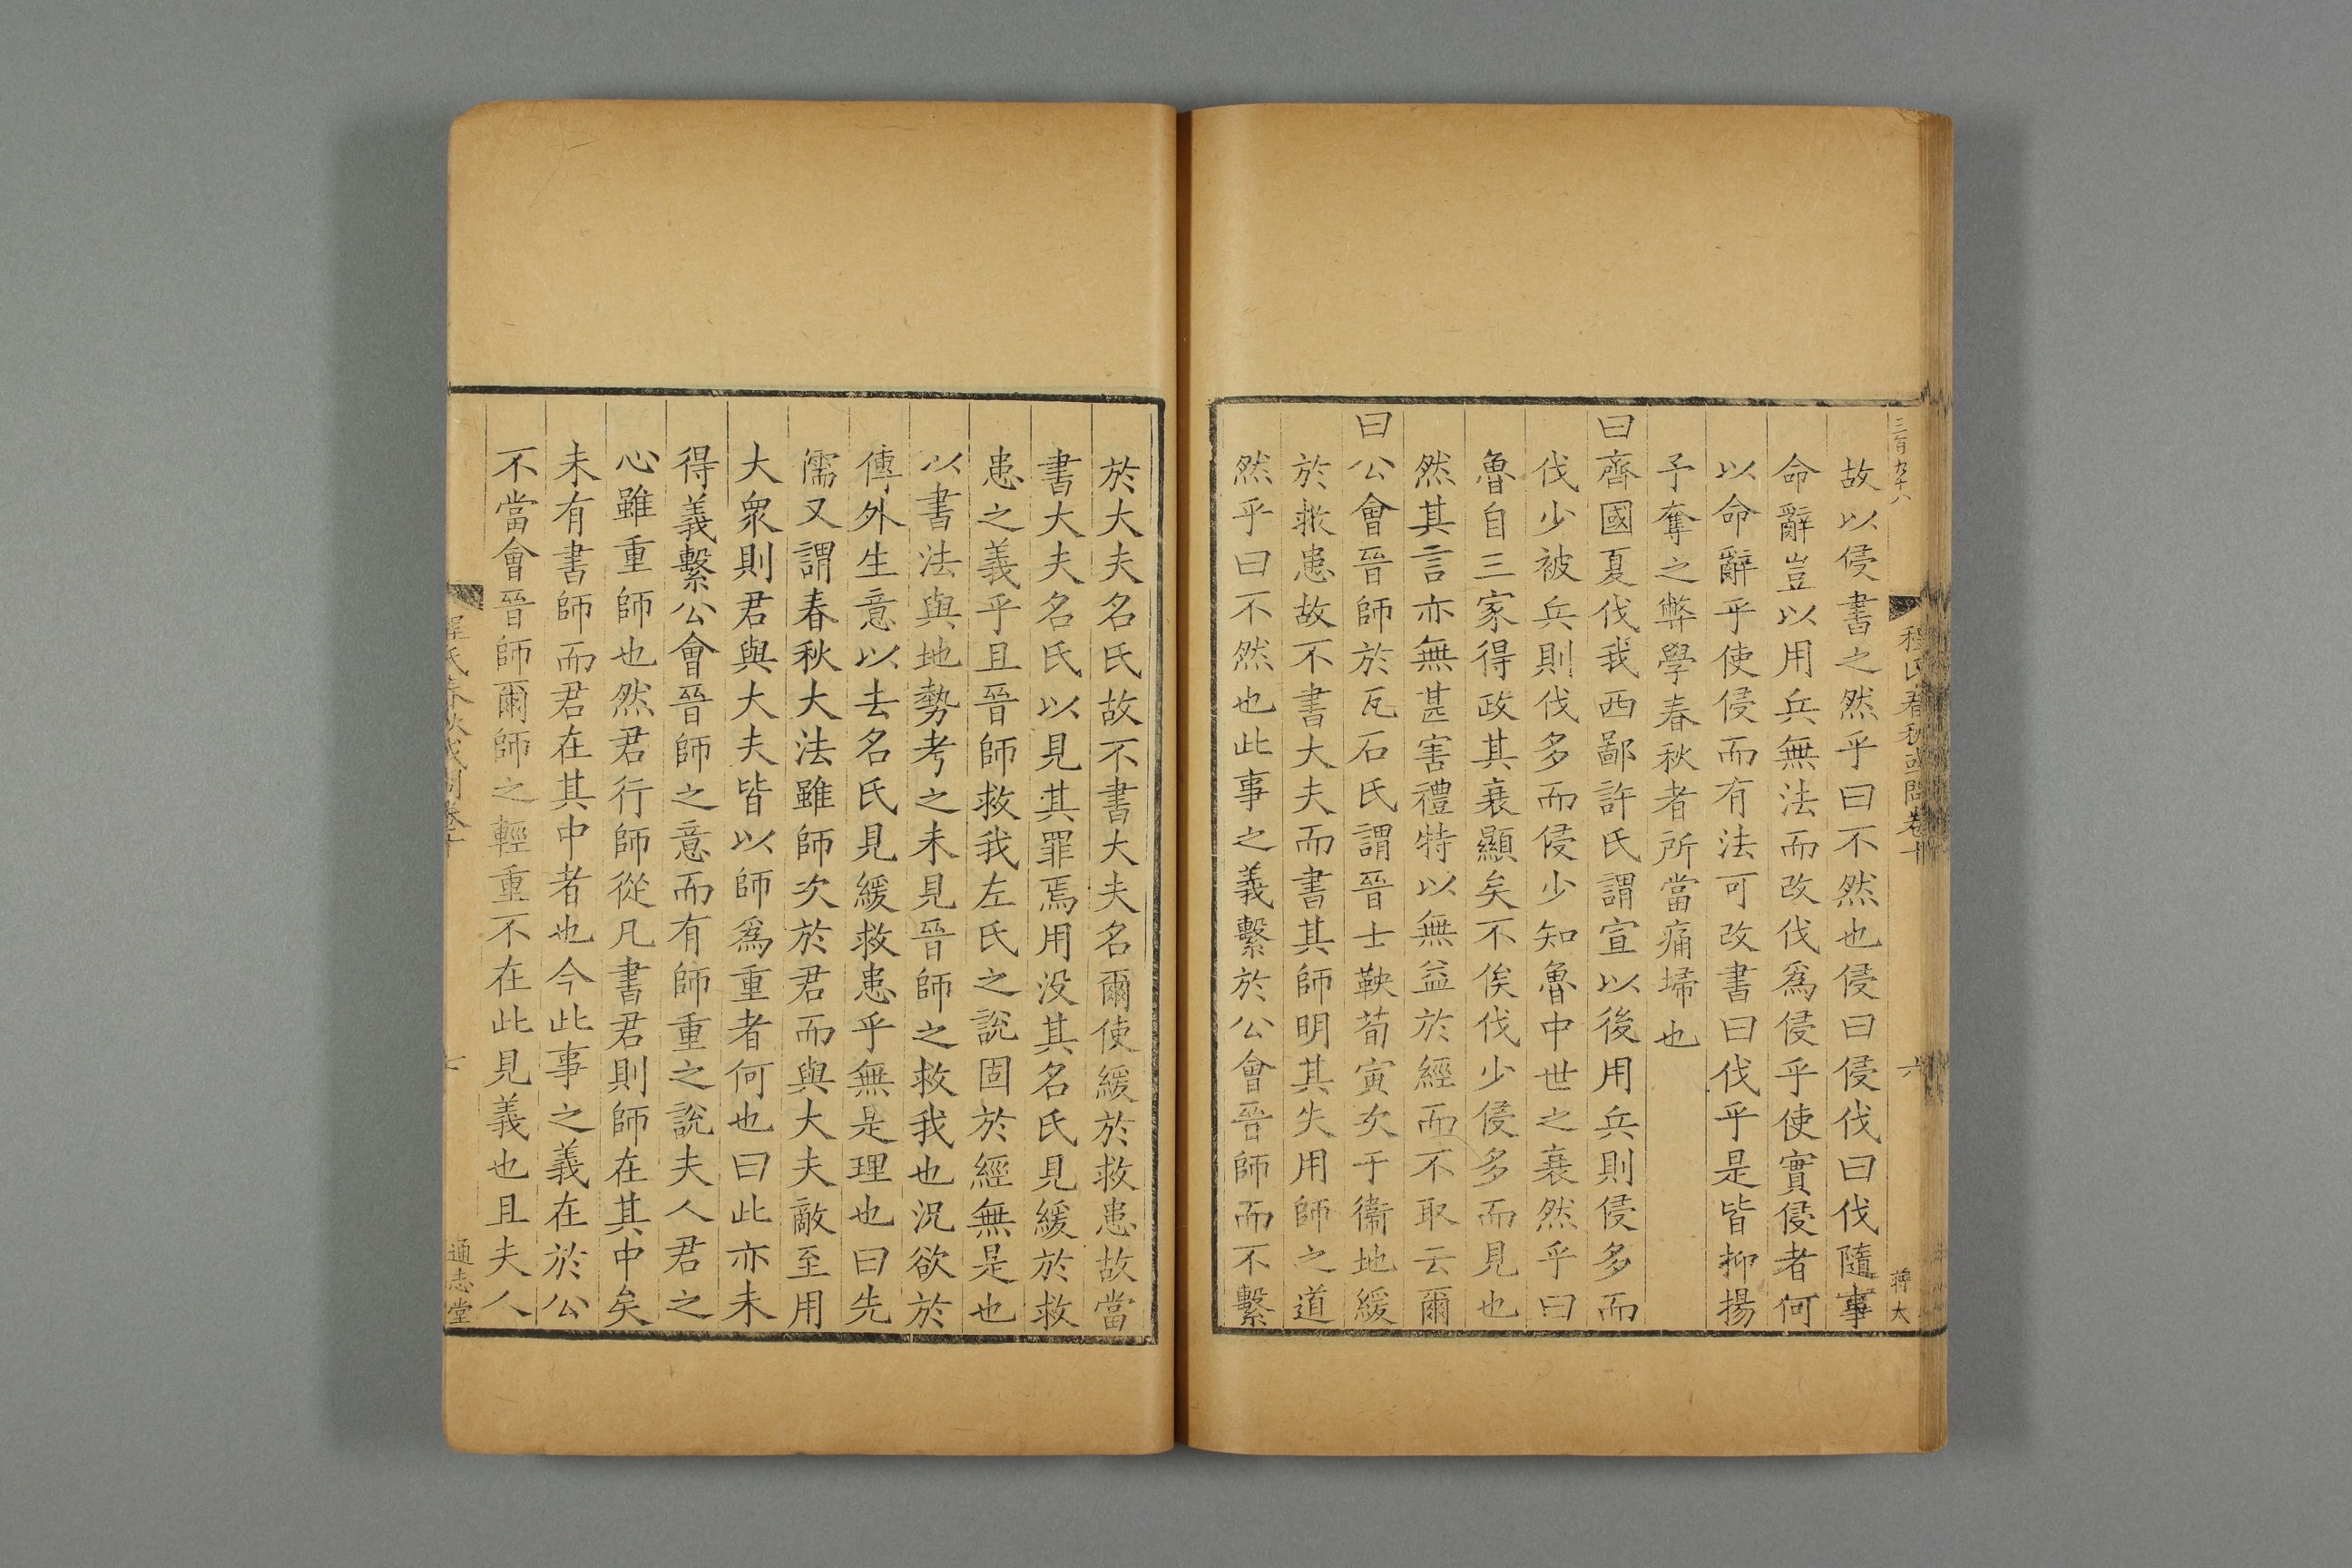 三百九十八
程氏春秋或問卷十
六
蔣太
故以侵書之然乎曰不然也侵曰侵伐曰伐隨事
命辭豈以用兵無法而改伐爲侵乎使實侵者何
以命辭乎使侵而有法可改書曰伐乎是皆抑揚
予奪之弊學春秋者所當痛埽也
曰齊國夏伐我西鄙許氏謂宣以後用兵則侵多而
伐少被兵則伐多而侵少知魯中世之衰然乎曰
魯自三家得政其衰顯矣不俟伐少侵多而見也
然其言亦無甚害禮特以無益於經而不取云爾
曰公會晉師於瓦石氏謂晉士鞅荀寅次于衞地緩
於救患故不書大夫而書其師明其失用師之道
然乎曰不然也此事之義繫於公會晉師而不繫
於大夫名氏故不書大夫名爾使緩於救患故當
書大夫名氏以見其罪焉用没其名氏見緩於救
患之義乎且晉師救我左氏之說固於經無是也
以書法與地勢考之未見晉師之救我也況欲於
傳外生意以去名氏見緩救患乎無是理也曰先
儒又謂春秋大法雖師次於君而與大夫敵至用
大衆則君與大夫皆以師爲重者何也曰此亦未
得義繫公會晉師之意而有師重之說夫人君之
心雖重師也然君行師從凡書君則師在其中矣
未有書師而君在其中者也今此事之義在於公
不當會晉師爾師之輕重不在此見義也且夫人
程氏春秋或問卷十
七
通志堂